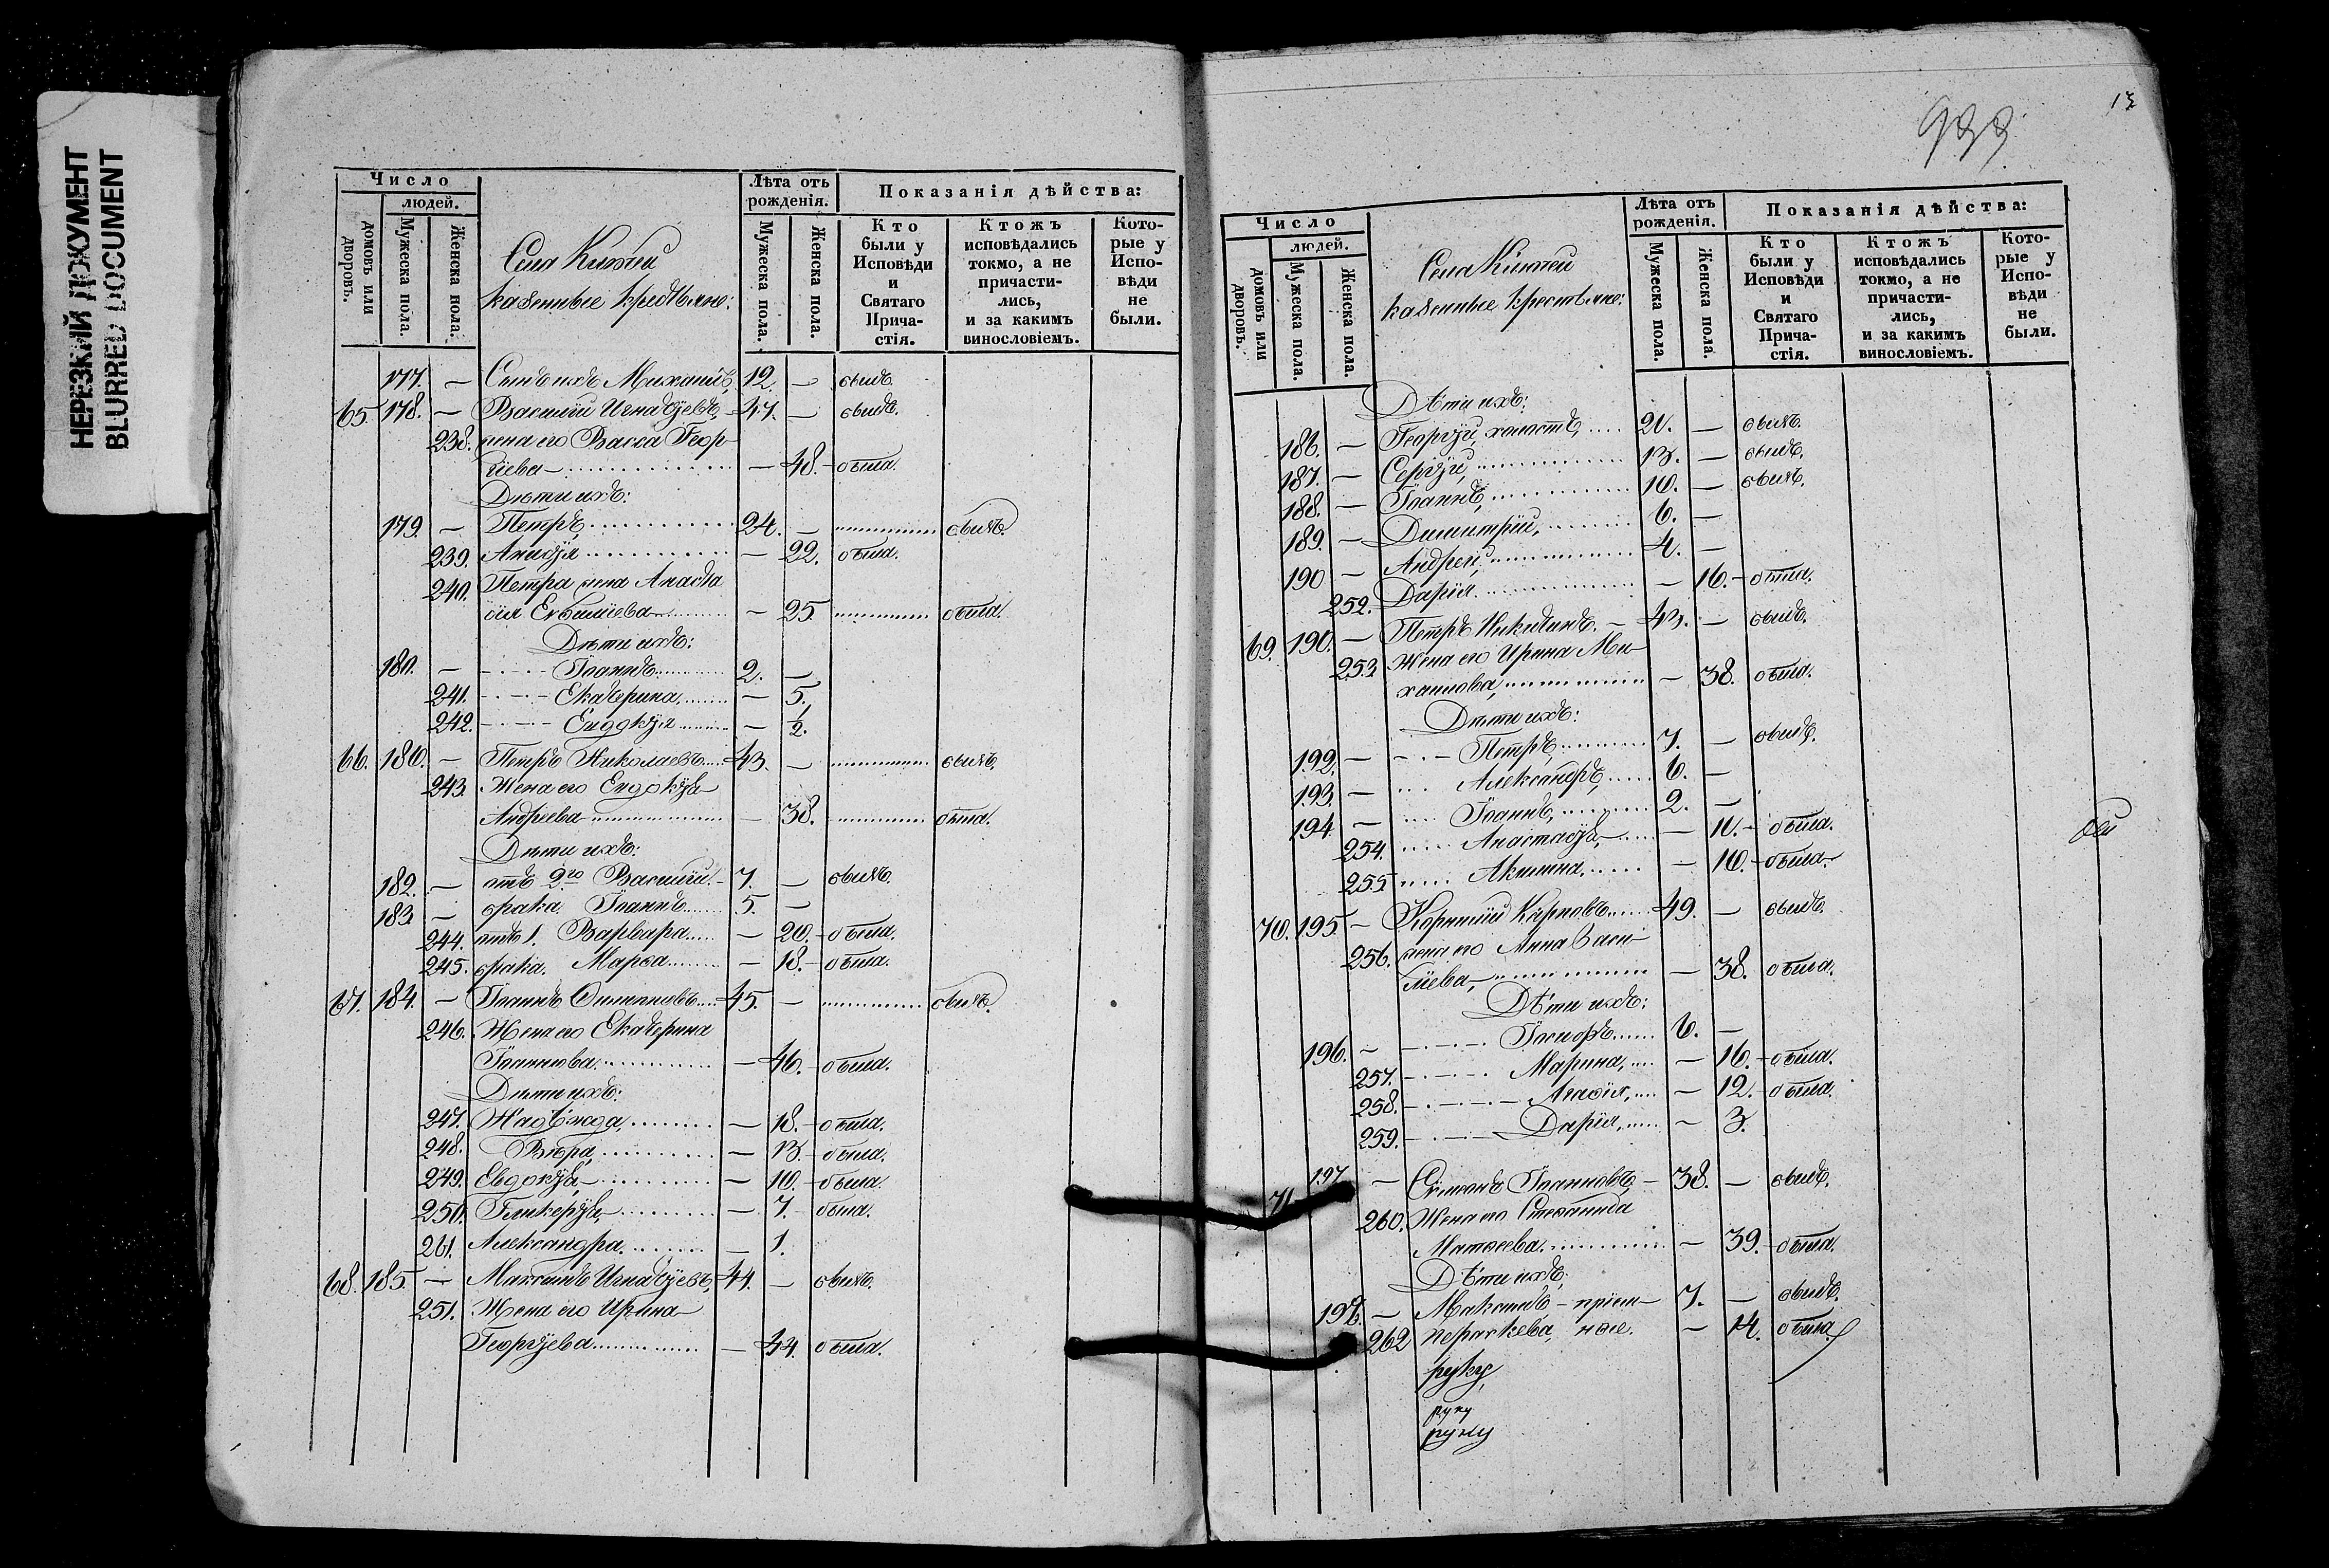 НЕРЕЗКИЙ ДОКУМЕНТ
BLURRED DOCUMENT
Число
людей.
домовъ или дворовъ.
Мужеска пола.
Женска пола.
Села
казенные крестьяне:
Лѣта отъ рожденія.
Мужеска пола.
Женска пола.
Показанія дѣйства:
Кто были у Исповѣди и Святаго Прича-стія.
Ктожъ исповѣдались токмо, а не причасти-лись, и за какимъ винословіемъ.
Кото-рые у Испо-вѣди не были.
177. — Сынъ ихъ Михаилъ, 12. — былъ.
65. 178. — Василій Игнатіевъ, 47. — былъ.
238. жена его Васса Геор-
гіева — 48. — была.
Дѣти ихъ:
179. — Петръ, 24. — былъ.
239. — 22. была.
240. Петра жена Анаста
сія — 25. была.
Дѣти ихъ:
180. — Іоаннъ 2. —
241. Екатерина, — 5.
242. Евдокія — ½.
66. 180. — Петръ Николаевъ 43. — былъ.
243. Жена его Евдокія
Андреева — 38. была.
Дѣти ихъ:
182. — отъ 2го Василій. 7. — былъ.
183 — брака. Іоаннъ 5. —
244. отъ 1. Варвара — 20. была.
245. брака. Марѳа — 18. была.
67. 184. — Іоаннъ Филиповъ 45. — былъ.
246. Жена его Екатерина
Іоаннова. — 46. была.
Дѣти ихъ:
247. Надѣжда, — 18. была.
248. Вѣра, — 13. была.
249. Евдокія, — 10. была.
250. Гликерія, — 7. была.
261. Александра. — 1.
68. 185. — Максимъ Игнатіевъ, 44. — былъ.
251. Жена его Ирина
Георгіева — 44. была.
13
933
Число
людей.
домовъ или дворовъ.
Мужеска пола.
Женска пола.
Села
казенные крестьяне:
Лѣта отъ рожденія.
Мужеска пола.
Женска пола.
Показанія дѣйства:
Кто были у Исповѣди и Святаго Прича-стія.
Ктожъ исповѣдались токмо, а не причасти-лись, и за какимъ винословіемъ.
Кото-рые у Испо-вѣди не были.
Дѣти ихъ:
186. — Георгій, холостъ, — былъ.
187. — Сергій, 13. — былъ.
188. — Іоаннъ, 10. — былъ.
189. — Димитрій, 6. —
190 — Андрей, 4. —
252. Дарія — 16. — была.
69. 190. — Петръ Никитинъ. — 43. — былъ.
253 Жена его Ирина Ми-
хаилова, — 38. была.
Дѣти ихъ:
192. — Петръ, 7. — былъ.
193. — Александръ, 6. —
194 — Іоаннъ, 2. —
254. Анастасія, — была.
255 Акилина, — 10. — была.
70. 195. — Корнилій Карповъ 49. — былъ.
256. жена его Анна Васи-
ліева, — 38. была.
Дѣти ихъ:
196. — Іосифъ 6. —
257. Марина, — 16. — была.
258. Агафія, — 12. — была.
259. Дарія, — 3.
71 197 — Симеонъ Іоанновъ, — 38. — былъ.
260. Жена его Стефанида
Матѳеева. — 39. — была.
Дѣти ихъ:
198. — Максимъ — пріем- 7. — былъ.
262 Параскева, ные. — 14. была.
руку
руку
руку